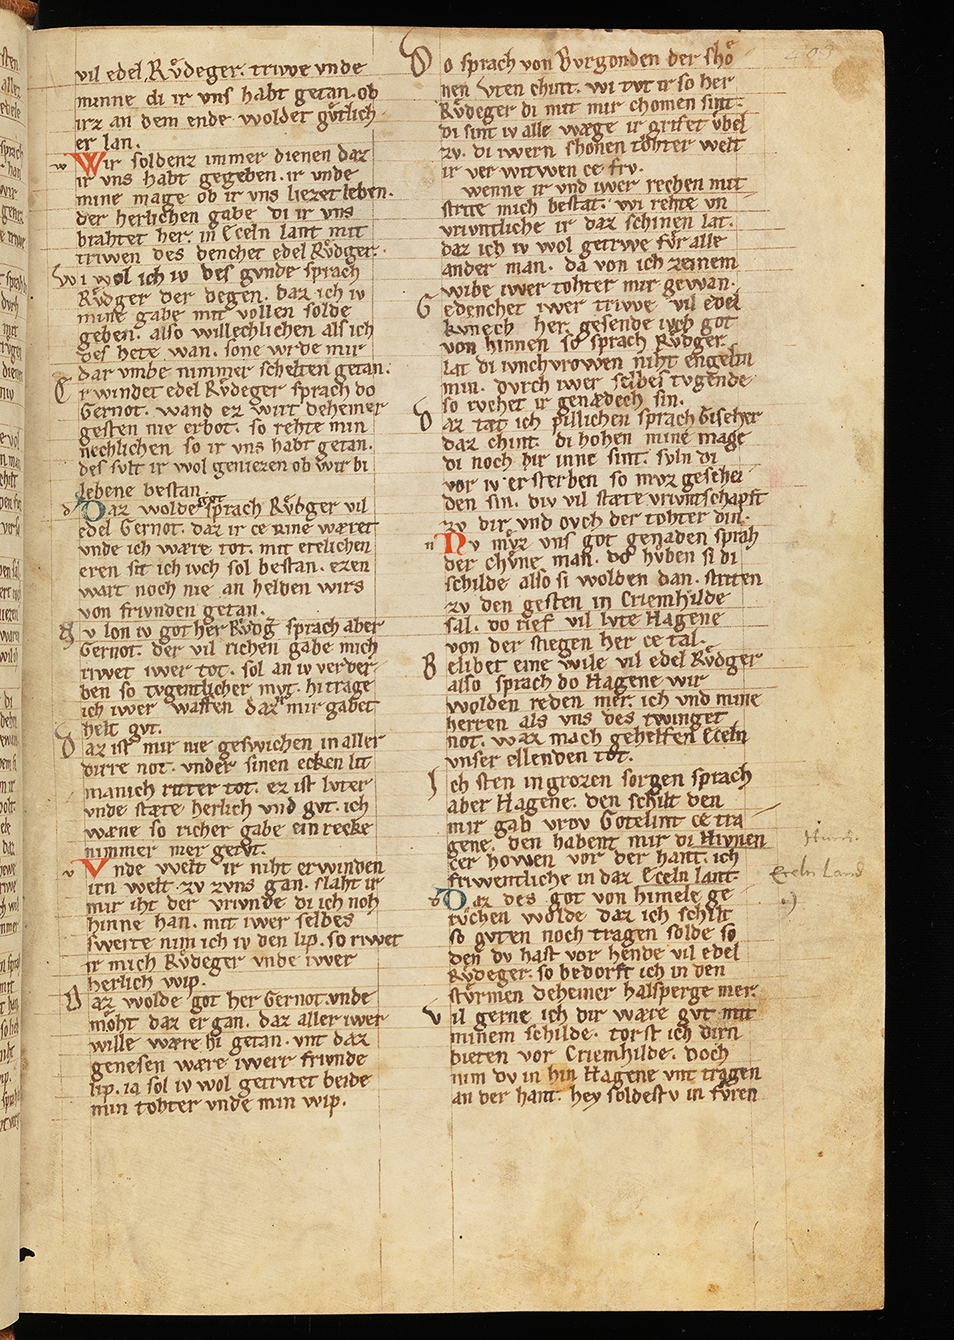 vil edel Rv̊deger. triwe vnde
minne di ir vns habt getan. ob
irz an dem ende woldet gv̊tlich
er lan.
w Wir soldenz immer dienen daz
ir vns habt gegeben. ir vnde
mine mage ob ir vns liezet leben.
der herlichen gabe di ir vns
brahtet her. in Eceln lant mit
triwen des denchet edel Rv̊dger.
Wi wol ich iv des gvnde sprach
Rv̊dger der degen. daz ich iv
mine gabe mit vollen solde
geben. also willechlichen als ich
des hete wan. sone wrde mir
dar vmbe nimmer schelten getan.
Erwindet edel Rv̊deger sprach do
Gernot. wand ez wirt deheiner
gesten nie erbot. so rehte min
nechlichen so ir vns habt getan.
des svlt ir wol geniezen ob wir bi
lebene bestan.
d Daz wolde got sprach Rv̊dger vil
edel Gernot. daz ir ce rine wæret
vnde ich wære tot. mit etelichen
eren sit ich ivch sol bestan. ezen
wart noch nie an helden wirs
von frivnden getan.
Nv lon iv got her Rv̊dg̃ sprach aber
Gernot. der vil richen gabe mich
riwet iwer tot. sol an iv verder
ben so tvgentlicher mv̊t. hi trage
ich iwer waffen daz mir gabet
helt gvt.
Daz ist mir nie geswichen in aller
dirre not. vnder sinen ecken lit
manich ritter tot. ez ist lvter
vnde stæte herlich vnd gvt. ich
wæne so richer gabe ein recke
nimmer mer getvt.
v Vnde welt ir niht erwinden
irn welt zv zvns gan. slaht ir
mir iht der vrivnde di ich noh
hinne han. mit iwer selbes
swerte nim ich iv den lip. so riwet
ir mich Rv̊deger vnde iwer
herlich wip.
Daz wolde got her Gernot. vnde
mo̊ht daz er gan. daz aller iwer
wille wære hi getan. vnt daz
genesen wære iwerr frivnde
lip. ia sol iv wol getrvet beide
min tohter vnde min wip.
Do sprach von Bvrgonden der sho̊
nen Vten chint. wi tvt ir so her
Rv̊deger di mit mir chomen sint.
di sint iv alle wæge ir grifet vbel
zv. di iwern shonen to̊hter welt
ir ver witwen ce frv.
wenne ir vnd iwer rechen mit
strite mich bestat. wi rehte vn
vrivntliche ir daz schinen lat.
daz ich iv wol getrwe fv̊r alle
ander man. da von ich zeinem
wibe iwer tohter mir gewan.
Gedenchet iwer triwe vil edel
kvnech her. gesende ivch got
von hinnen so sprach Rv̊dger.
lat di ivnchvrowen niht engelten
min. dvrch iwer selbes tvgende
so rvchet ir genædech sin.
Daz tæt ich pillichen sprach Giselher
daz chint. di hohen mine mage
di noch hir inne sint. svln di
vor iv ersterben so mvz geschei
den sin. div vil stæte vrivntschapft
zv dir vnd ovch der tohter din.
n Nv mv̊z vns got genaden sprah
der chv̊ne man. do hv̊ben si di
schilde also si wolden dan. striten
zv den gesten in Criemhilde
sal. do rief vil lvte Hagene
von der stiegen her ce tal.
Belibet eine wile vil edel Rv̊dger
also sprach do Hagene wir
wolden reden mer. ich vnd mine
herren als vns des twinget
not. waz mach gehelfen Eceln
vnser ellenden tot.
Ich sten in grozen sorgen sprach
aber Hagene. den schilt den
mir gab vrov Gotelint ce tra
gene. den habent mir di Hivnen
cer howen vor der hant. ich
friwentliche in daz Eceln lant
d Daz des got von himele ge
rv̊chen wolde daz ich schilt
so gvten noch tragen solde so
den dv hast vor hende vil edel
Rv̊deger. so bedorft ich in den
stv̊rmen deheiner halsperge mer.
Vil gerne ich dir wære gvt mit
minem schilde. torst ich dirn
bieten vor Criemhilde. doch
nim dv in hin Hagene vnt tragen
an der hant. hey soldestv in fv̊ren
Eceln Land